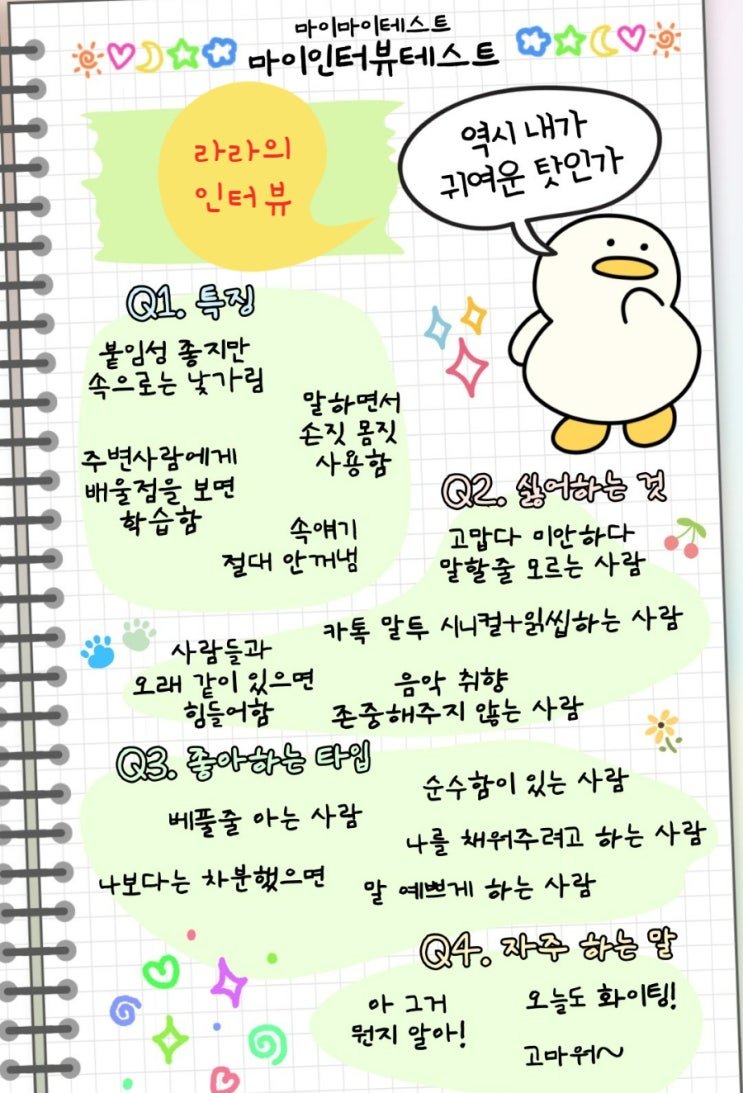 마이마이테스트
마이인터뷰테스트
라라의
인터뷰
역시 내가
귀여운 탓인가
Q1. 특징
붙임성 좋지만
속으로는 낯가림
말하면서
손짓 몸짓
사용함
주변사람에게
배울점을 보면
학습함
속얘기
절대 안꺼냄
Q2. 싫어하는 것
고맙다 미안하다
말할줄 모르는 사람
카톡 말투 시니컬+읽씹하는 사람
사람들과
오래 같이 있으면
힘들어함
음악 취향
존중해주지 않는 사람
Q3. 좋아하는 타입
베풀줄 아는 사람
순수함이 있는 사람
나를 채워주려고 하는 사람
나보다는 차분했으면
말 예쁘게 하는 사람
Q4. 자주 하는 말
아 그거
뭔지 알아!
오늘도 화이팅!
고마워~